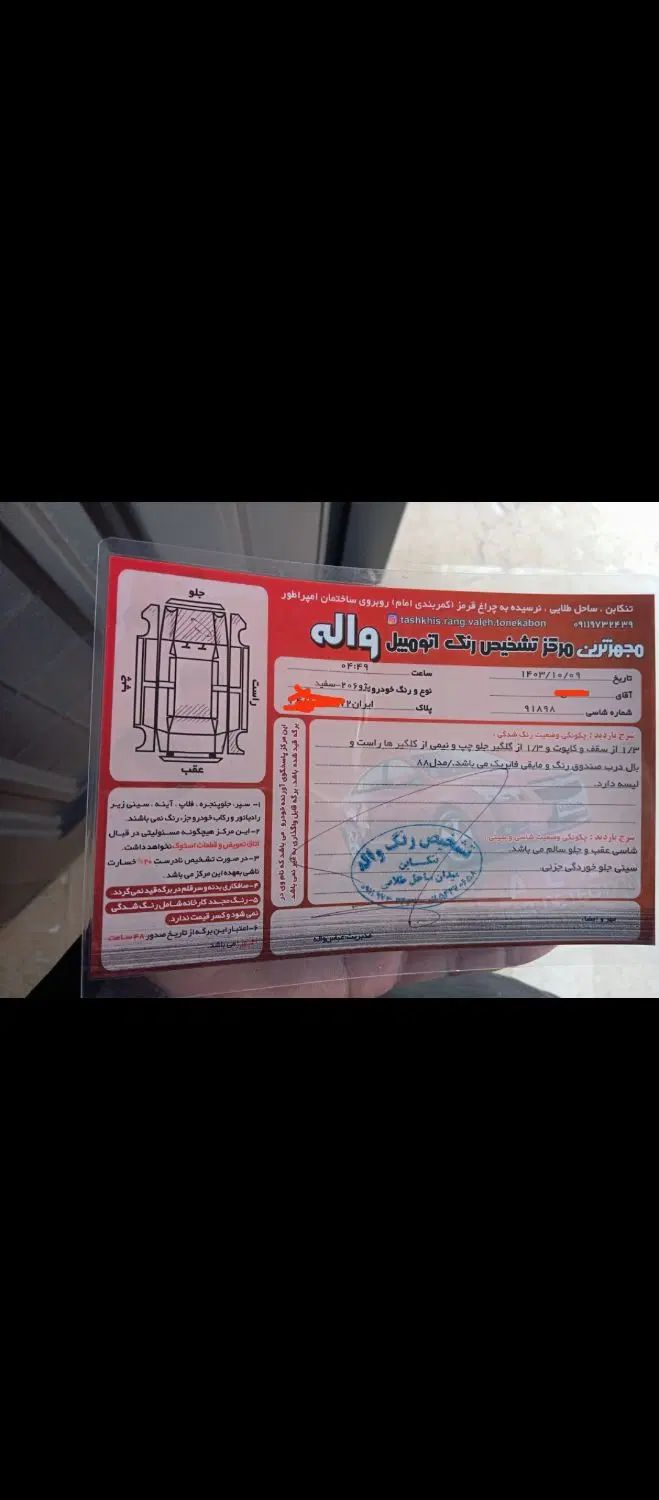 تنکابن ، ساحل طلایی ، نرسیده به چراغ قرمز (کمربندی امام) روبروی ساختمان امپراطور
۰۹۱۱۹۷۳۲۴۳۹ tashkhis.rang.valeh.tonekabon
مجهزترین مرکز تشخیص رنگ اتومبیل واله
تاریخ ۱۴۰۳/۱۰/۰۹ ساعت ۰۴:۴۹
آقای نوع و رنگ خودرو پژو۲۰۶-سفید
شماره شاسی ۹۱۸۹۸ پلاک ایران
شرح بازدید : چگونگی وضعیت رنگ شدگی :
۱/۳ از سقف و کاپوت و ۱/۳ از گلگیر جلو چپ و نیمی از گلگیر ها راست و
بال درب صندوق رنگ و مابقی فابریک می باشد./مدل۸۸
لیسه دارد.
شرح بازدید : چگونگی وضعیت شاسی و سینی :
شاسی عقب و جلو سالم می باشد.
سینی جلو خوردگی جزئی.
مهر و امضاء
مدیریت:عباس واله
تشخیص رنگ واله
تنکابن
میدان ساحل طلایی
این مرکز پاسخگوی آورنده خودرو می باشد که نام وی در
برگه قید شده باشد. برگه قابل واگذاری به غیر نمی باشد.
جلو
چپ
راست
عقب
۱- سپر، جلوپنجره، فلاپ ، آینه ، سینی زیر
رادیاتور و رکاب خودرو جزء رنگ نمی باشند.
۲- این مرکز هیچگونه مسئولیتی در قبال
اتاق تعویض و قطعات استوک نخواهد داشت.
۳- در صورت تشخیص نادرست ۲۰% خسارت
ناشی بعهده این مرکز می باشد.
۴- صافکاری بدنه و سرقلم در برگه قید نمی گردد.
۵- رنگ مجدد کارخانه شامل رنگ شدگی
نمی شود و کسر قیمت ندارد.
۶- اعتبار این برگه از تاریخ صدور ۴۸ ساعت
می باشد.